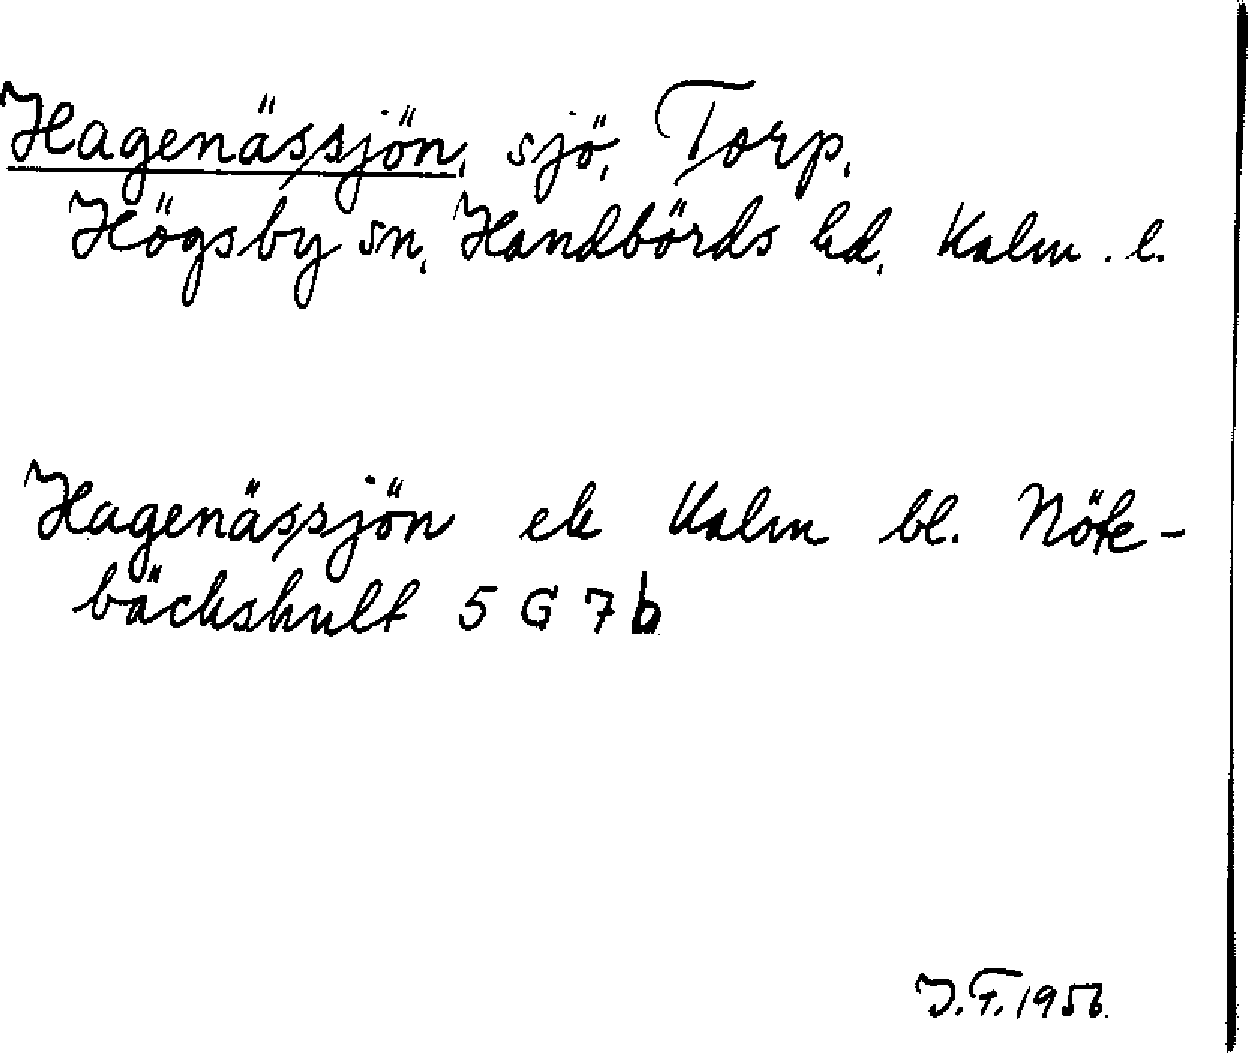 Hagenässjön, sjö, Torp,
Högsby sn, Handbörds hd, Kalm. l.
Hagenässjön ek Kalm bl. Nöte-
bäckshult 5 G 7 b
J.F. 1956.